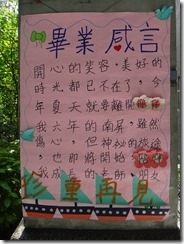 畢業感言
開心的笑容，美好的
時光都已不在了，今
年夏天就要離開
我六年的南屏，雖然
傷心，但神秘的旅途
，也即將開始，
我成長的老師，朋友
珍重再見